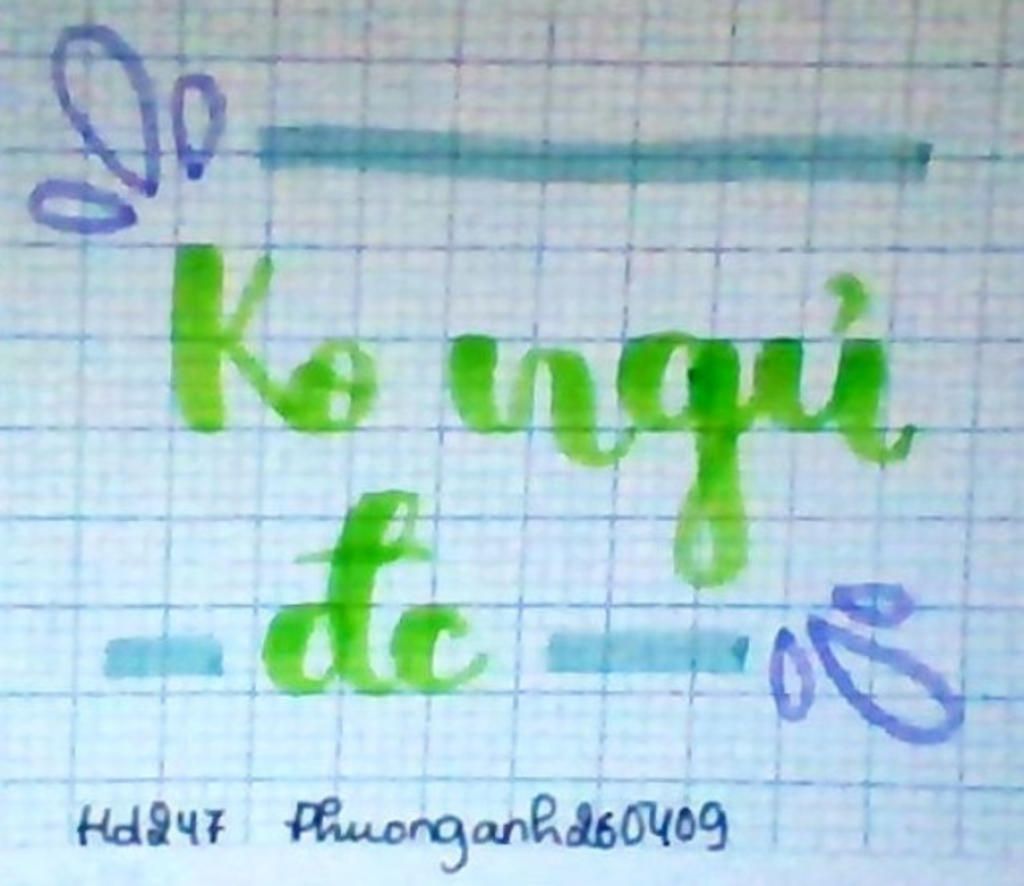 Ko ngủ
đc
Hd247 Phuonganh260409